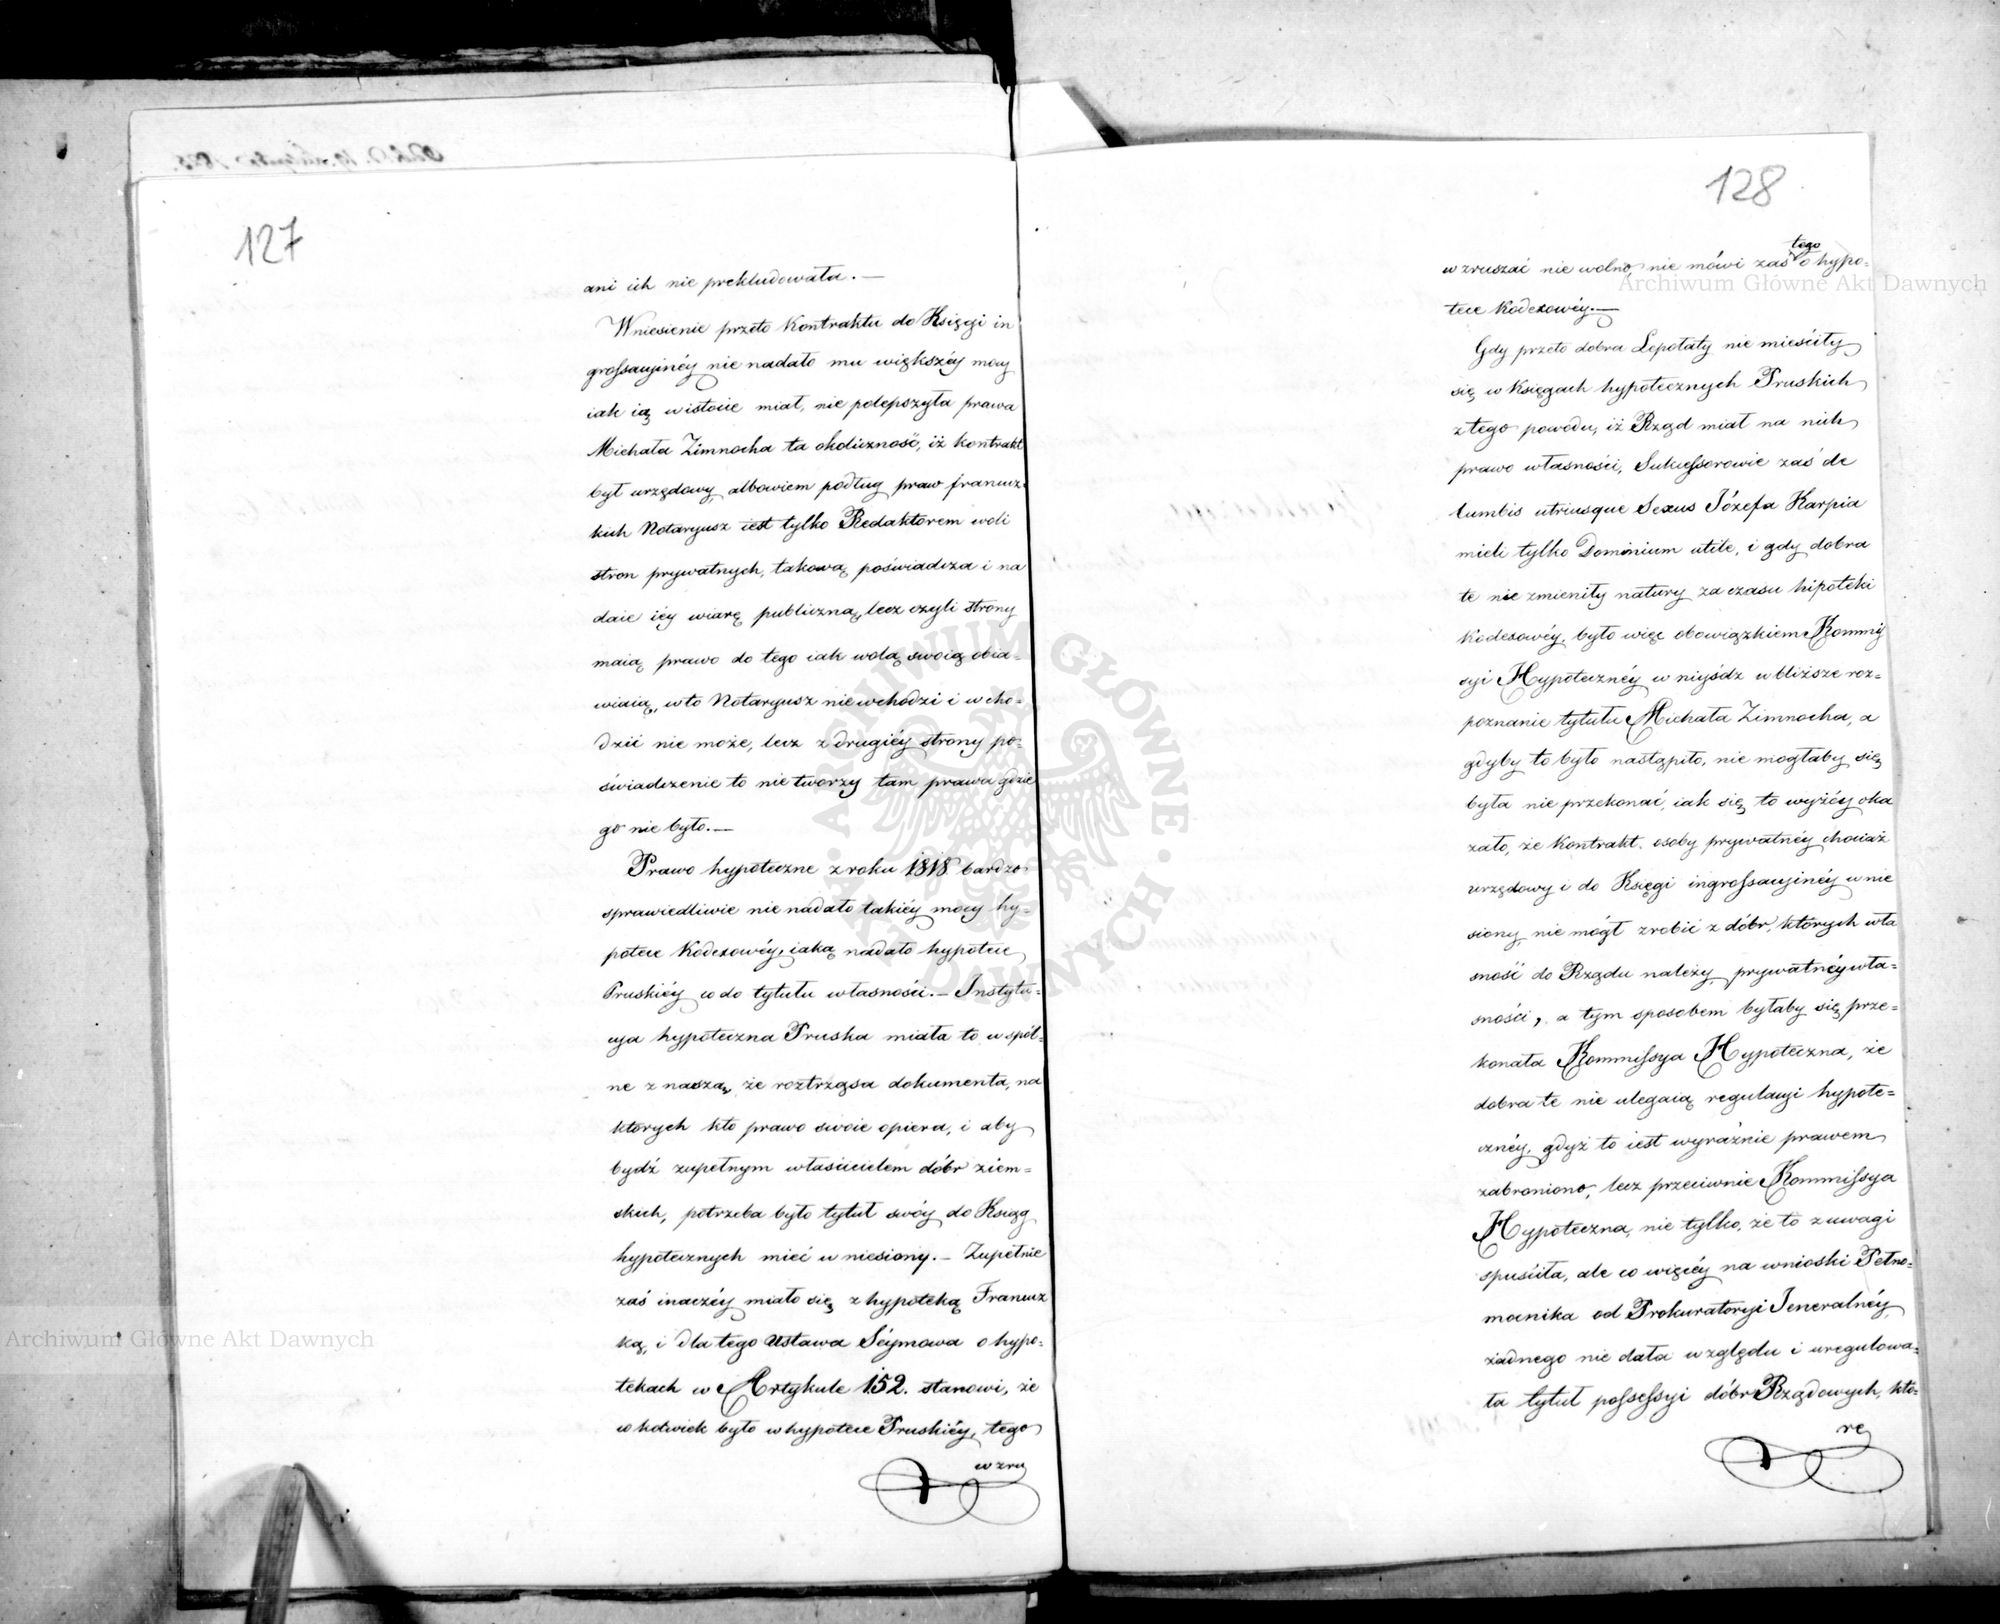 127
ani ich nie prekludowała.—
Wniesienie przeto Kontraktu do Księgi in
grossacyinéy nie nadało mu większéy mocy
iak ią w istocie miał, nie polepszyła prawa
Michała Zimnocha ta okoliczność, iż kontrakt
był urzędowy, albowiem podług praw francuz=
kich Notaryusz iest tylko Redaktorem woli
stron prywatnych, takową poświadcza i na
daie iéy wiarę publiczną, lecz czyli strony
maią prawo do tego iak wolą swoią obia=
wiaią, w to Notaryusz nie wchodzi i wcho=
dzić nie może, lecz z drugiéy strony po=
świadczenie to nie tworzy tam prawa gdzie
go nie było.—
Prawo hypoteczne z roku 1818 bardzo
sprawiedliwie nie nadało takiéy mocy hy=
potece Kodexowéy, iaką nadało hypotece
Pruskiéy co do tytułu własności.— Instytu=
cya hypoteczna Pruska miała to wspól=
ne z naszą, że roztrząsa dokumenta, na
których kto prawo swoie opiera, i aby
bydź zupełnym właścicielem dóbr ziem=
skich, potrzeba było tytuł swóy do Ksiąg
hypotecznych mieć wniesiony.— Zupełnie
zaś inaczéy miało się z hypoteką Francuz
ką, i dla tego Ustawa Séymowa o hypo=
tekach w Artykule 152. stanowi, że
cokolwiek było w hypotece Pruskiéy, tego
wzru
128
wzruszać nie wolno, nie mówi zaś tego o hypo=
tece Kodexowéy.—
Gdy przeto dobra Lepołaty nie mieściły
się w Księgach hypotecznych Pruskich
z tego powodu, iż Rząd miał na nich
prawo własności, Sukcessorowie zaś de
lumbis utriusque Sexus Józefa Karpia
mieli tylko Dominium utile, i gdy dobra
te nie zmieniły natury za czasu hipoteki
Kodexowéy, było więc obowiązkiem Kommis
syi Hypotecznéy wniyśdź w bliższe roz=
poznanie tytułu Michała Zimnocha, a
gdyby to było nastąpiło, nie mogłaby się
była nie przekonać, iak się to wyżéy oka
zało, że Kontrakt osoby prywatnéy chociaż
urzędowy i do Księgi ingrossacyinéy wnie
siony, nie mógł zrobić z dóbr, których wła
sność do Rządu należy, prywatnéy wła=
sności, a tym sposobem byłaby się prze=
konała Kommissya Hypoteczna, że
dobra te nie ulegaią regulacyi hypote=
cznéy, gdyż to iest wyraźnie prawem
zabroniono, lecz przeciwnie Kommissya
Hypoteczna, nie tylko, że to z uwagi
spuściła, ale co więcéy na wnioski Pełno=
mocnika od Prokuratoryi Jeneralnéy,
żadnego nie dała względu i uregulowa=
ła tytuł possessyi dóbr Rządowych, któ=
rę
Archiwum Główne Akt Dawnych
Archiwum Główne Akt Dawnych
ARCHIWUM GŁÓWNE AKT DAWNYCH